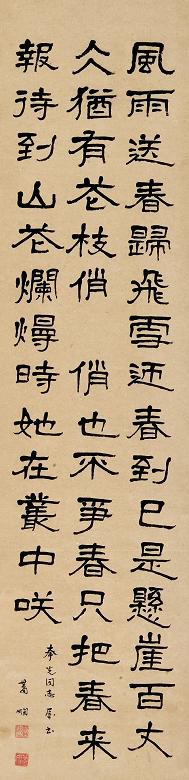 風雨送春歸飛雪迎春到已是懸崖百丈
仌猶有花枝俏 俏也不爭春只把春來
報待到山花爛熳時她在叢中咲
同志
葛